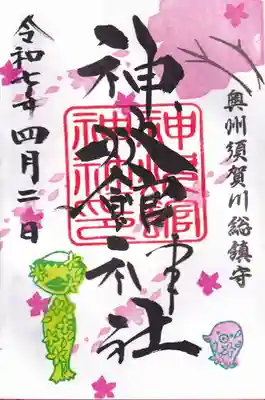 奥州須賀川総鎮守
神炊館神社
神炊館
神社印
令和七年四月二日